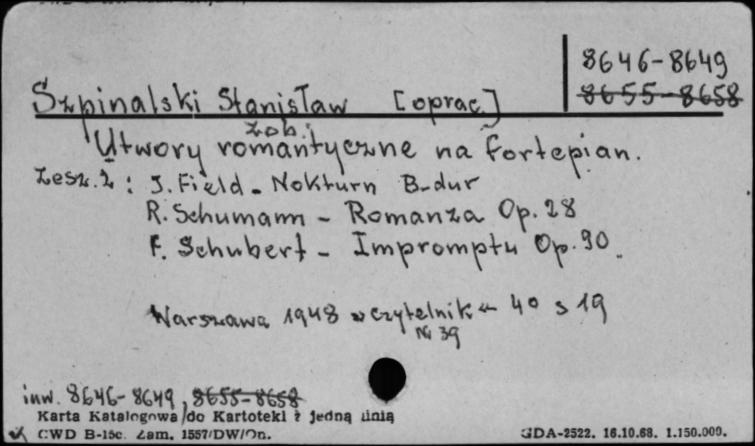 8646-8649
8655-8658
Szpinalski Stanisław [oprac.]
zob.:
Utwory romantyczne na fortepian.
Zesz. 2 : J. Field - Nokturn B-dur
R. Schumann - Romanza Op. 28
F. Schubert - Impromptu Op. 90
Warszawa 1948 "Czytelnik" 4° s 19
N 39
inw. 8646-8649, 8655-8658
Karta Katalogowa do Kartoteki z jedną linią
CWD B-15c. Zam. 1557/DW/On. GDA-2522. 16.10.68. 1.150.000.